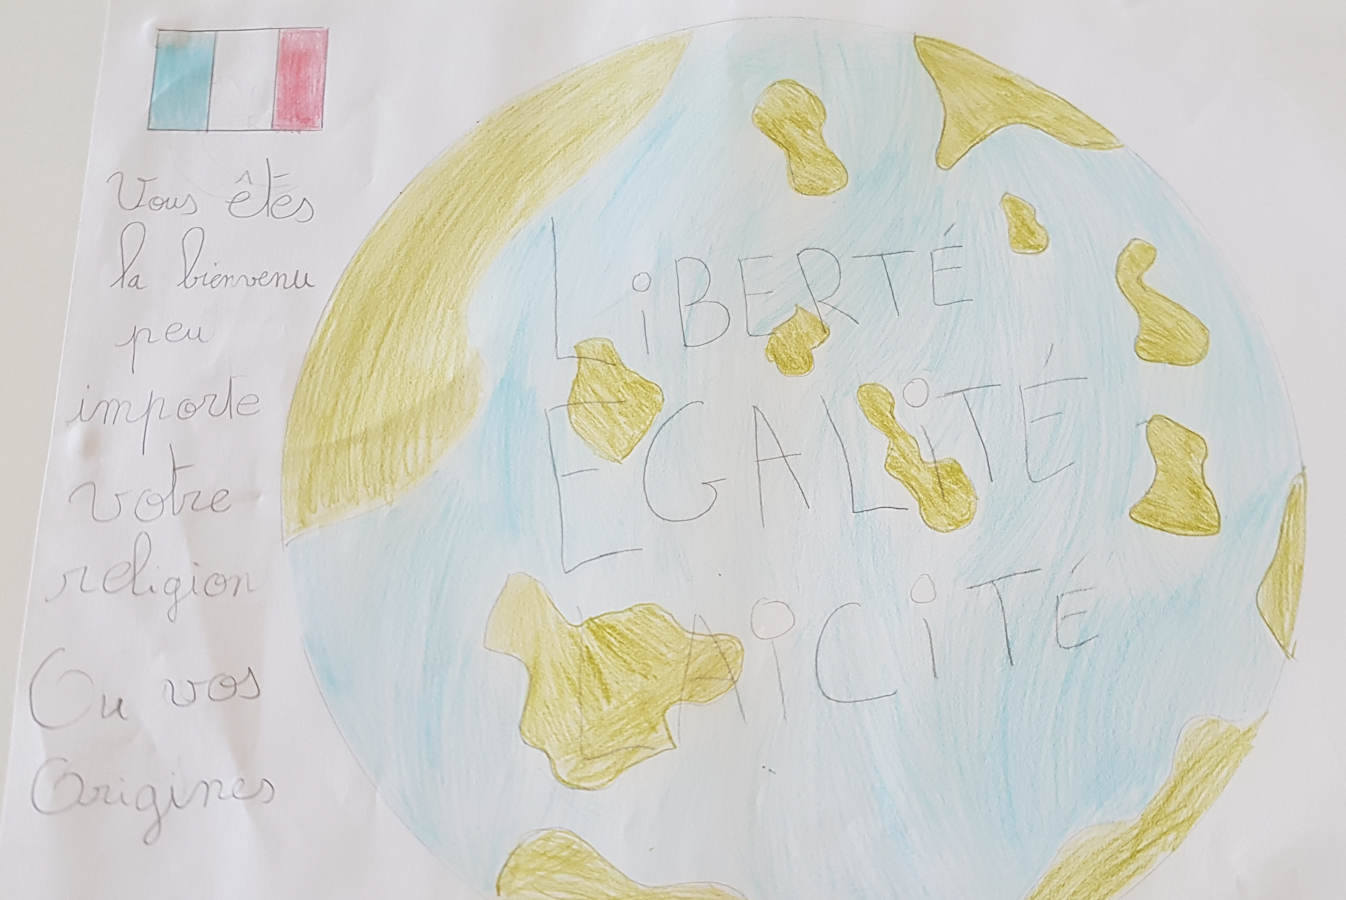 Vous êtes
la bienvenu
peu
importe
votre
religion
Ou vos
Origines
LiBERTÉ
EGALiTÉ
LAiCiTÉ